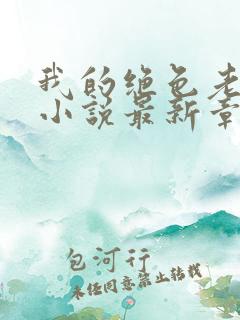 我的绝色老
小说最新章
包河行
未经同意禁止转载